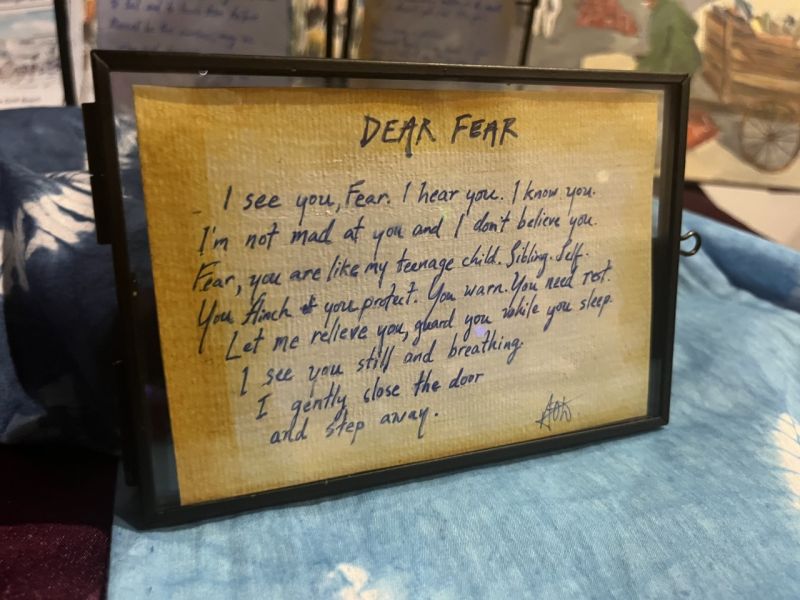 DEAR FEAR
I see you, Fear. I hear you. I know you.
I'm not mad at you and I don't believe you.
Fear, you are like my teenage child. Sibling. Self.
You flinch & you protect. You warn. You need rest.
Let me relieve you, guard you while you sleep.
I see you still and breathing.
I gently close the door
and step away.